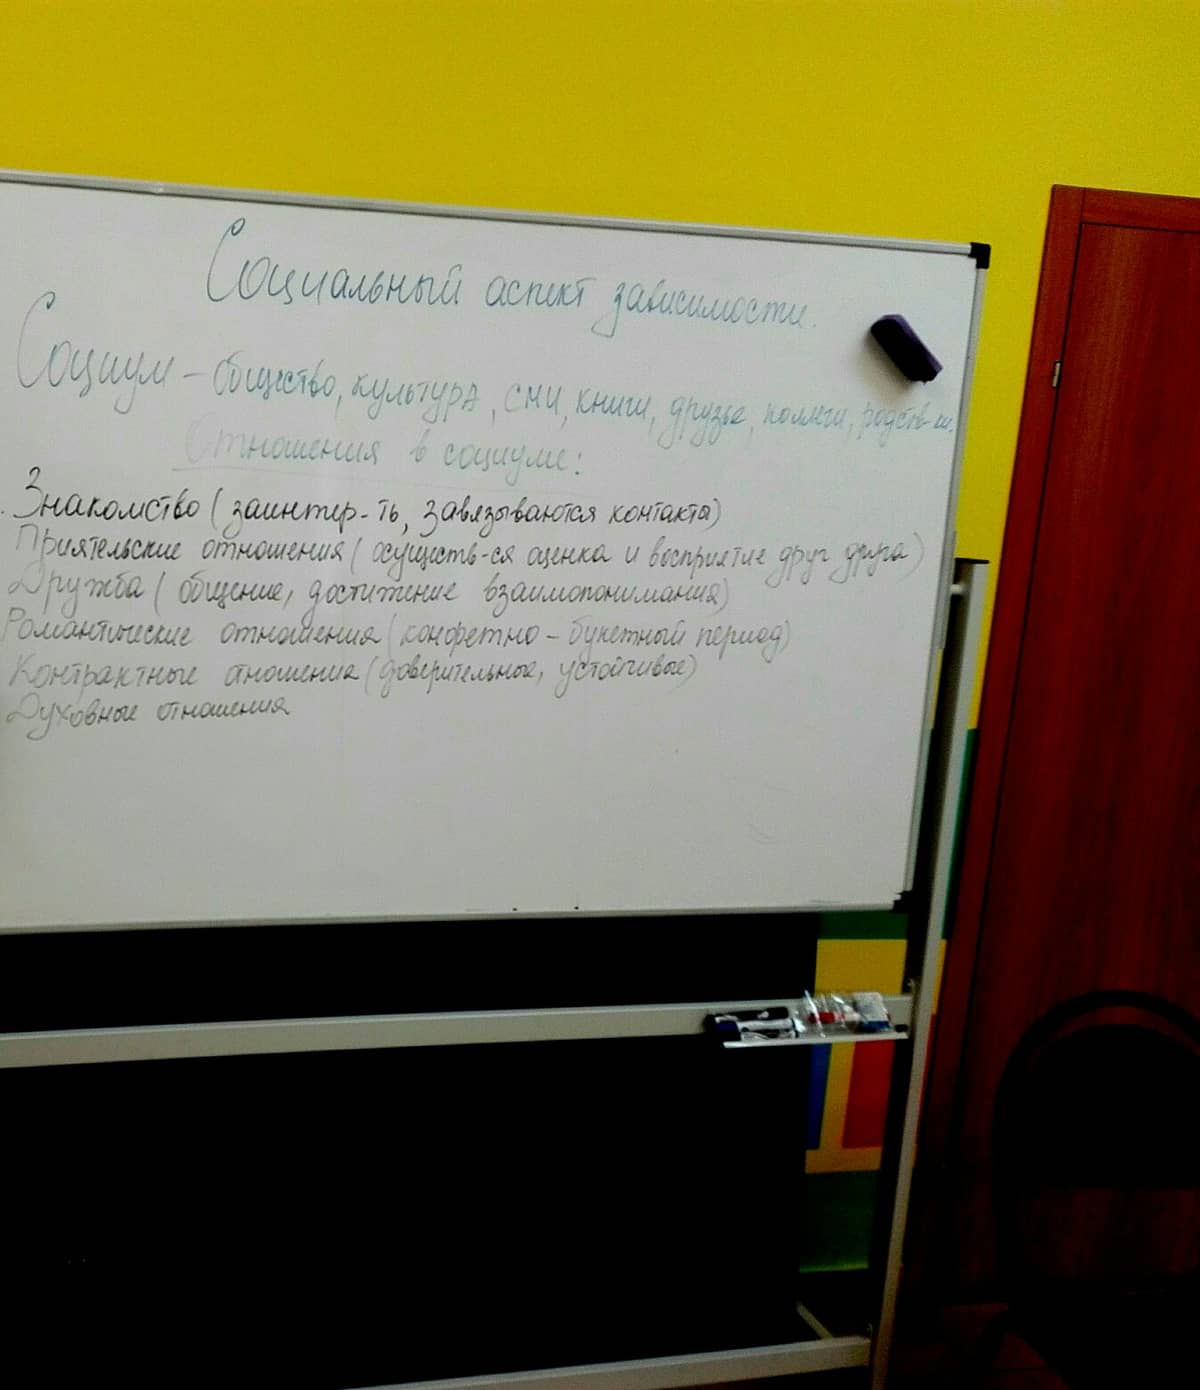 Социальный аспект зависимости.
Социум – общество, культура, СМИ, книги, друзья, коллеги, родств-ки.
Отношения в социуме:
Знакомство (заинтер-ть, завязываются контакты)
Приятельские отношения (осуществ-ся оценка и восприятие друг друга)
Дружба (общение, достижение взаимопонимания)
Романтические отношения (конфетно – букетный период)
Контрактные отношения (доверительные, устойчивые)
Духовные отношения